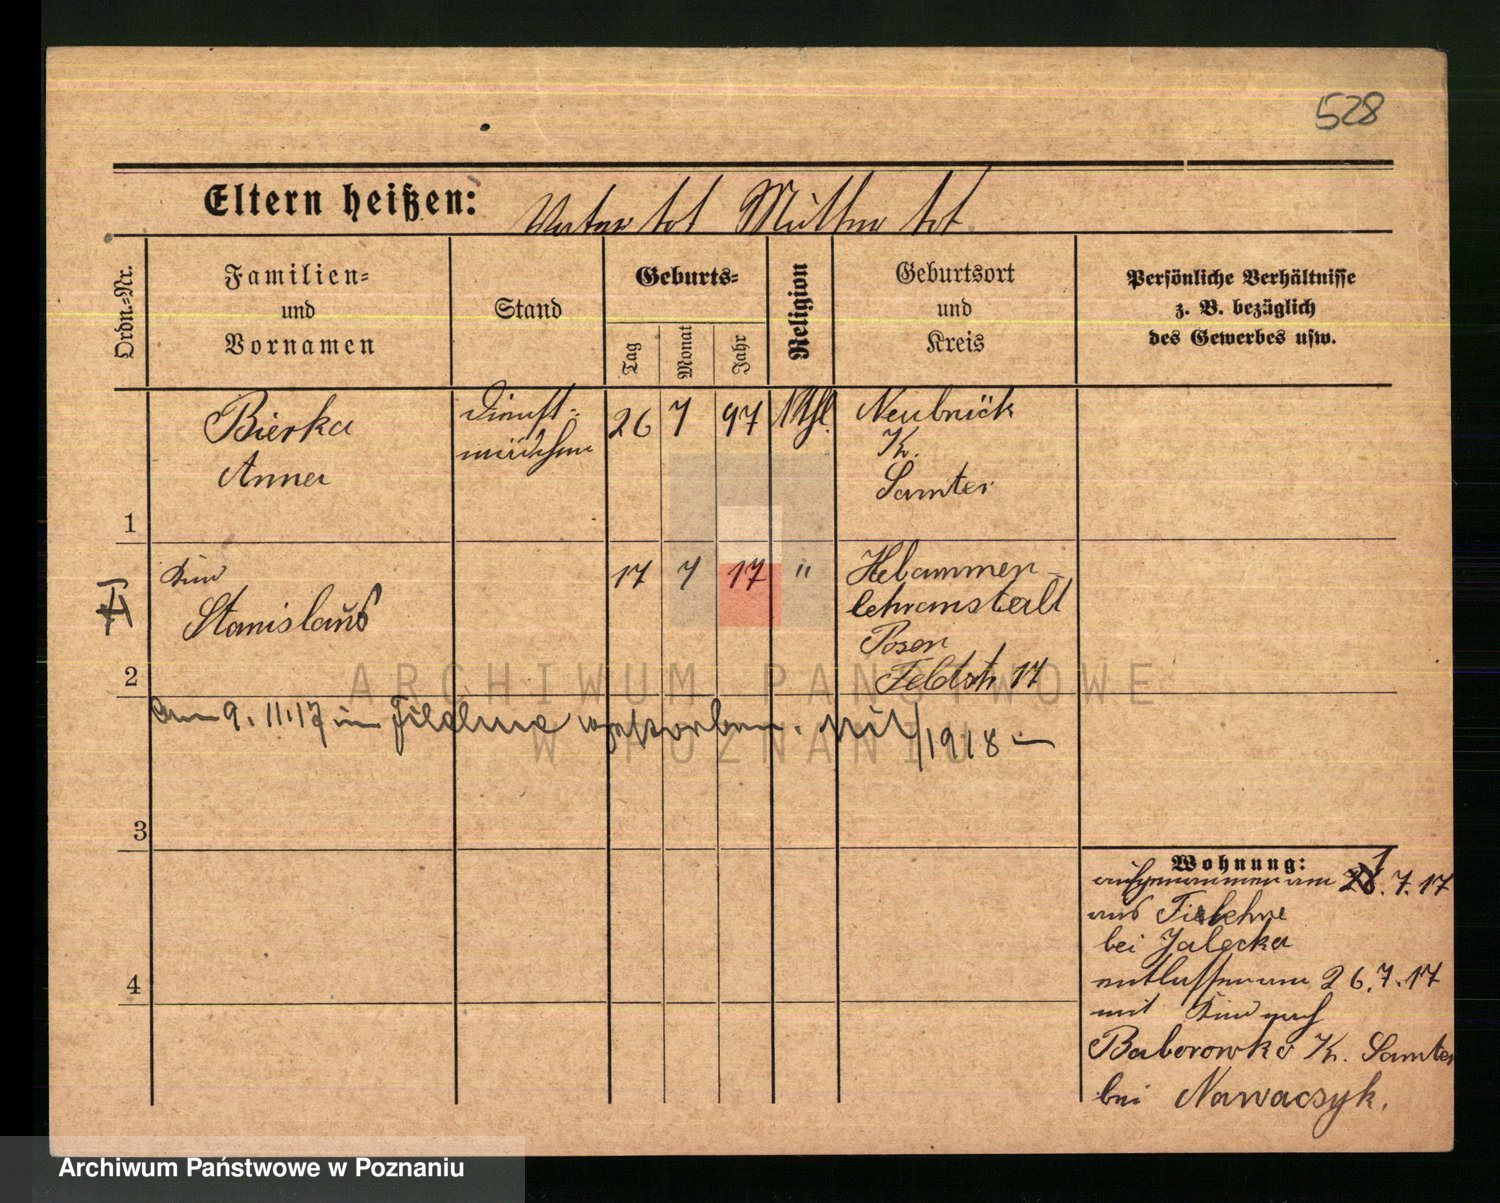 528
Eltern heißen: Vater tot Mutter tot
Ordn.-Nr.
Familien-
und
Vornamen
Stand
Geburts-
Tag
Monat
Jahr
Religion
Geburtsort
und
Kreis
Persönliche Verhältnisse
z. B. bezüglich
des Gewerbes usw.
1
Bierka
Anna
Dienst-
mädchen
26 7 97 Kthl.
Neubrück
K.
Samter
2
Kind
Stanislaus
17 7 17 "
Hebammen-
lehranstalt
Posen
Feldstr 17
am 9. 11. 17 in Filehne gestorben.
1918
3
4
Wohnung:
aufgenommen am 7. 17
aus Filehne
bei Jalecka
entlassen am 26. 7. 17
mit Kind nach
Baborowko Kr. Samter
bei Nawaczyk.
ARCHIWUM PAŃSTWOWE
W POZNANIU
Archiwum Państwowe w Poznaniu